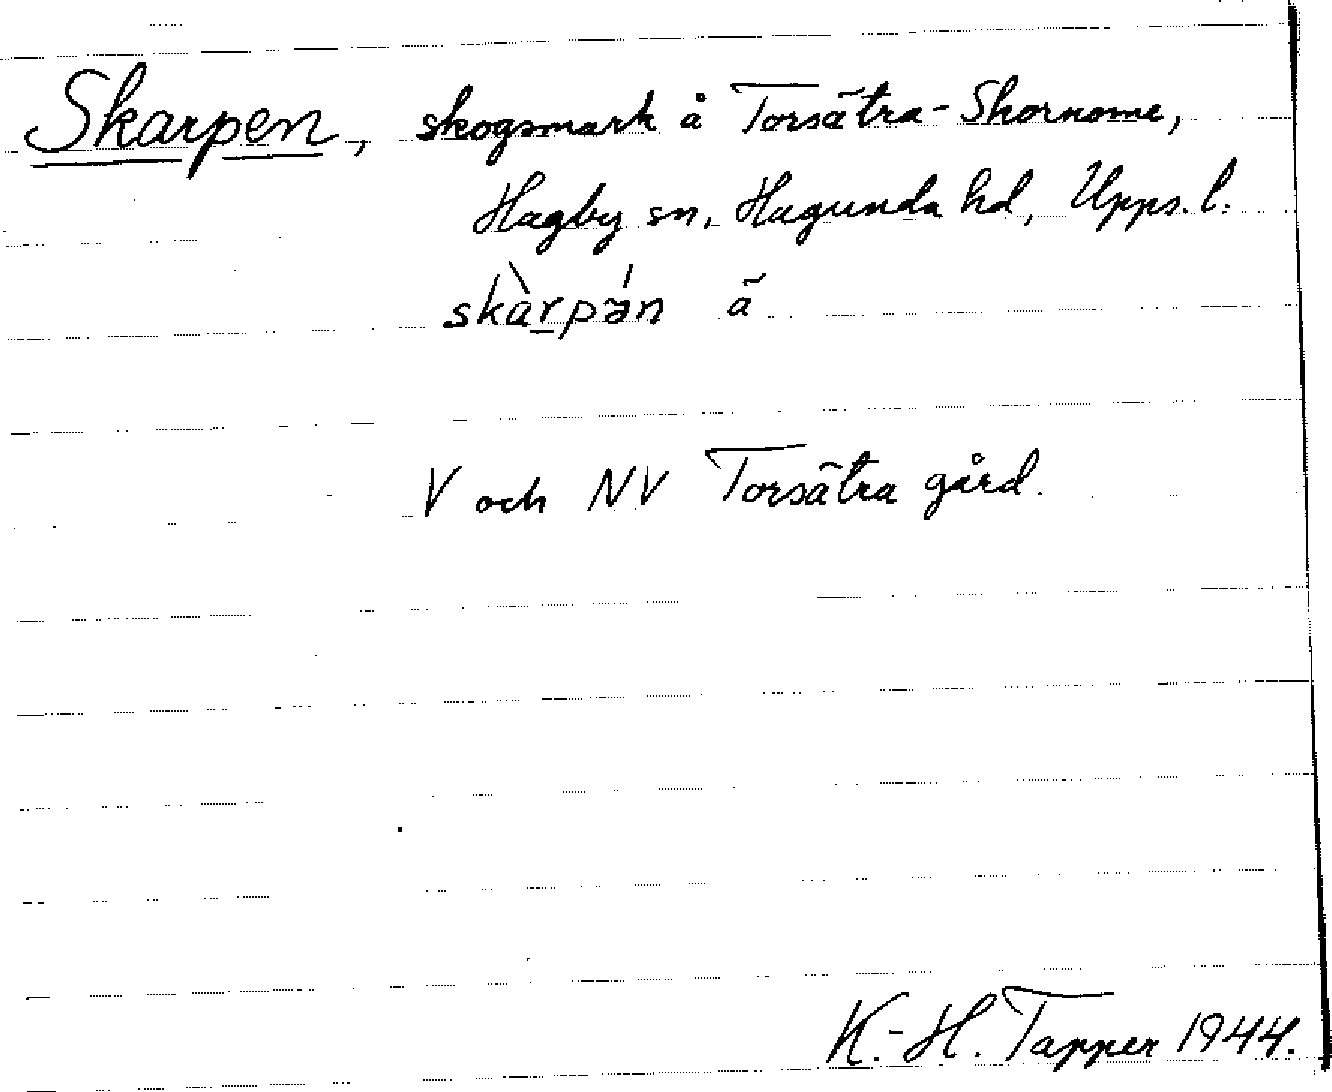 Skarpen, skogsmark å Torsätra-Skornome,
Hagby sn, Hagunda hd, Upps. l.
skàrpán ä
V och NV Torsätra gård.
K.-H. Tapper 1944.